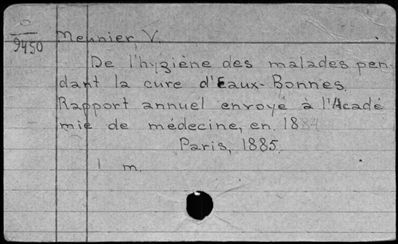 O
9450
Meunier, V.
De l'hygiène des malades pen-
dant la cure d'Eaux-Bonnes.
Rapport annuel envoyé à l'Acadé
mie de médecine, en 1884
Paris, 1885.
1 m.